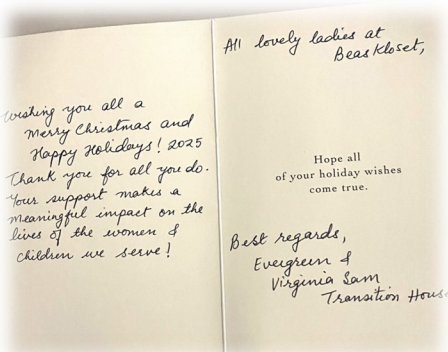 Wishing you all a
Merry Christmas and
Happy Holidays! 2025
Thank you for all you do.
Your support makes a
meaningful impact on the
lives of the women &
children we serve!
All lovely ladies at
Beas Kloset,
Hope all
of your holiday wishes
come true.
Best regards,
Evergreen &
Virginia Sam
Transition House